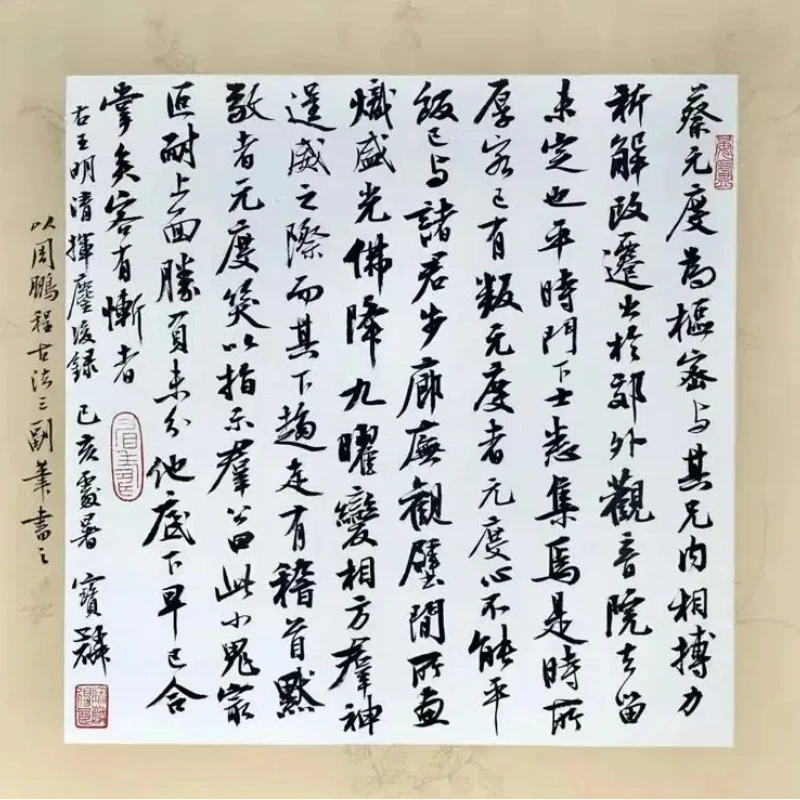 蔡元度為樞密与其兄内相搏力
祈解政遷出於郊外觀音院去留
未定也平時門下士悉集焉是時所
厚客已有叛元度者元度心不能平
飯已与諸君步廊廡觀壁間所畫
熾盛光佛降九曜變相方羣神
逞威之際而其下趨走有稽首默
敬者元度笑以指示羣公曰此小鬼最
叵耐上面勝負未分他底下早已合
掌矣客有慚者
右王明清揮麈後録 己亥處暑 寶麟
以周鵬程古法三副筆書之